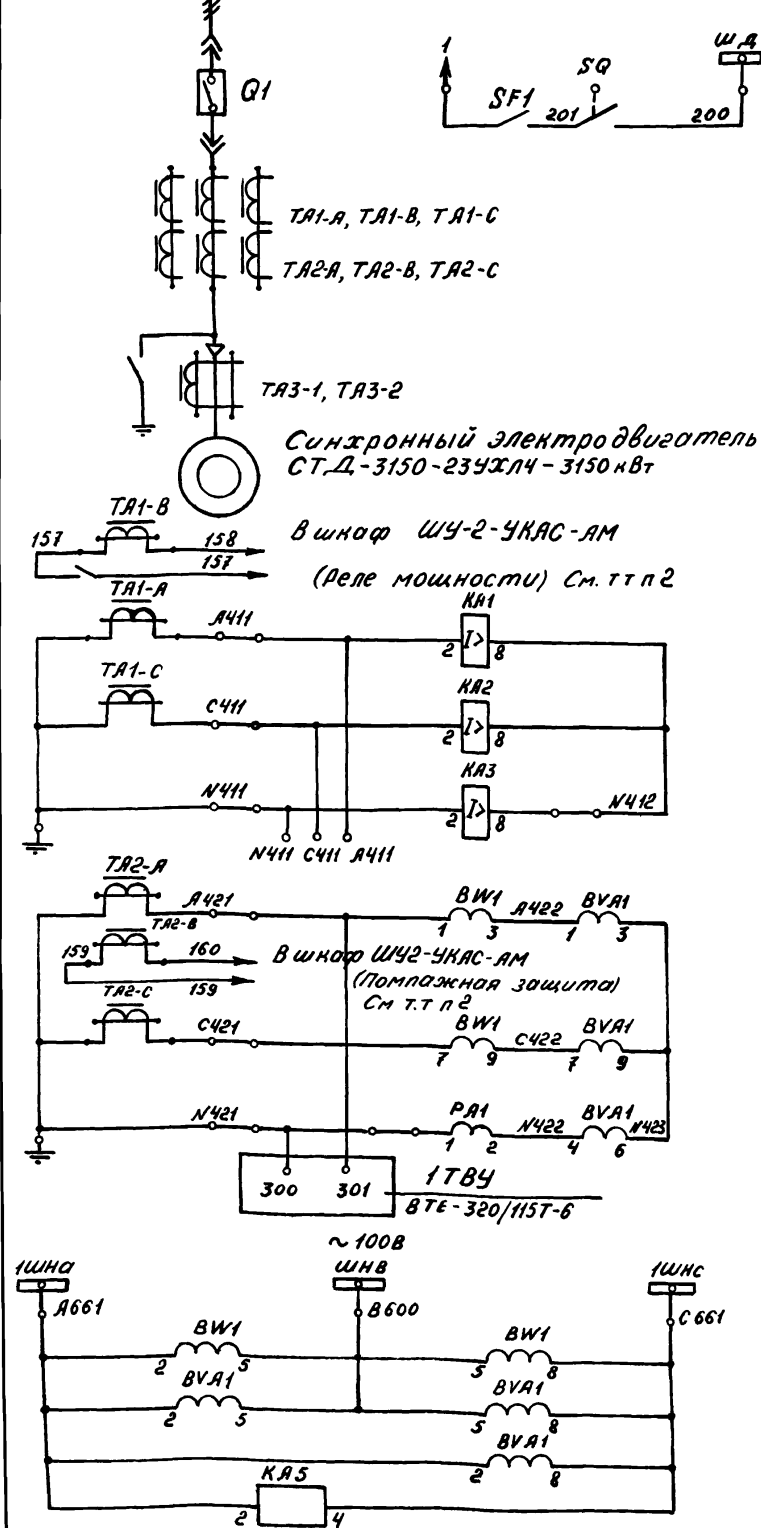 Q1
1
SF1
201
SQ
200
ШД
TA1-A, TA1-B, TA1-C
TA2-A, TA2-B, TA2-C
TA3-1, TA3-2
Синхронный электродвигатель
СТД-3150-23УХЛ4-3150кВт
TA1-B
157 158
157
В шкаф ШУ-2-УКАС-АМ
(Реле мощности) См. ТТ п2
TA1-A
A411
KA1
2 I> 8
TA1-C
C411
KA2
2 I> 8
N411
KA3
2 I> 8
N412
N411 C411 A411
TA2-A
A421
BW1
1 3
A422
BVA1
1 3
TA2-B
159 160
159
В шкаф ШУ2-УКАС-АМ
(Помпажная защита)
См т.т п2
TA2-C
C421
BW1
7 9
C422
BVA1
7 9
N421
PA1
1 2
N422
BVA1
4 6
N423
300 301
1ТВУ
ВТЕ-320/115Т-6
~100В
1ШНа ШНв 1ШНс
A661 B600 C661
BW1
2 5
BW1
5 8
BVA1
2 5
BVA1
5 8
BVA1
2 8
KA5
2 4